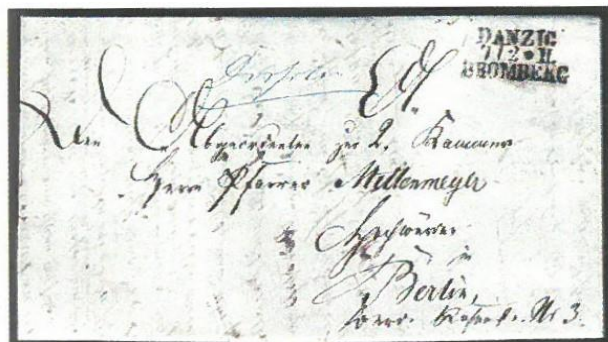 DANZIG
7/2 * II.
BROMBERG
Den
Abgeordneten zur 2. Kammer
Herrn Pfarrer Mettenmeyer
Hochwürden
in
Berlin,
No 3.